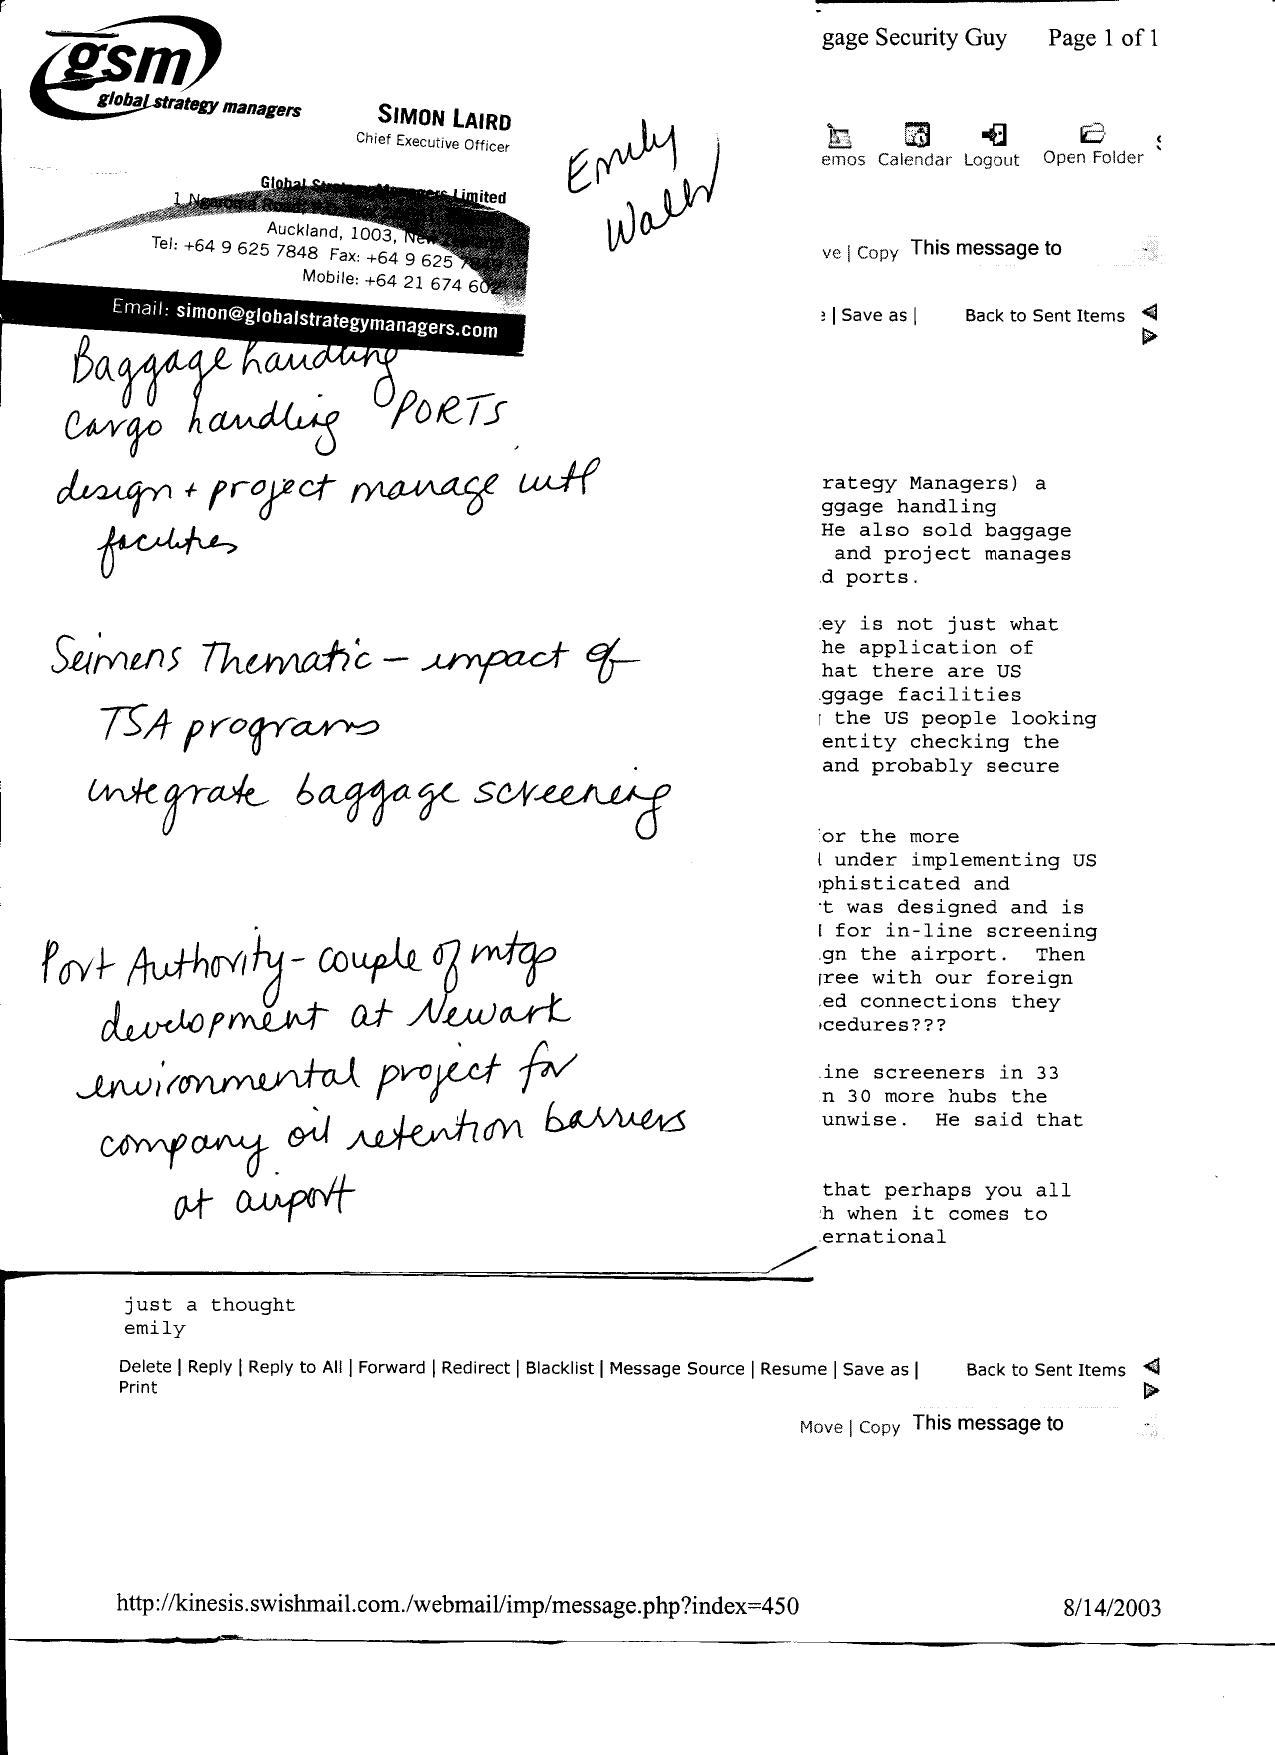 gsm
global strategy managers
SIMON LAIRD
Chief Executive Officer
Global Limited
1
Auckland, 1003, New
Tel: +64 9 625 7848 Fax: +64 9 625
Mobile: +64 21 674
Email: simon@globalstrategymanagers.com
Emily
Baggage handling
Cargo handling PORTS
design + project manage intl
facilities
Seimens Thematic - impact of
TSA programs
integrate baggage screening
Port Authority - couple of mtgs
development at Newark
environmental project for
company oil retention barriers
at airport
gage Security Guy Page 1 of 1
emos Calendar Logout Open Folder
ve | Copy This message to
| Save as | Back to Sent Items
rategy Managers) a
ggage handling
He also sold baggage
and project manages
d ports.
ey is not just what
he application of
hat there are US
ggage facilities
the US people looking
entity checking the
and probably secure
or the more
under implementing US
phisticated and
t was designed and is
for in-line screening
gn the airport. Then
ree with our foreign
ed connections they
cedures???
ine screeners in 33
n 30 more hubs the
unwise. He said that
that perhaps you all
h when it comes to
ernational
just a thought
emily
Delete | Reply | Reply to All | Forward | Redirect | Blacklist | Message Source | Resume | Save as | Back to Sent Items
Print
Move | Copy This message to
http://kinesis.swishmail.com./webmail/imp/message.php?index=450 8/14/2003